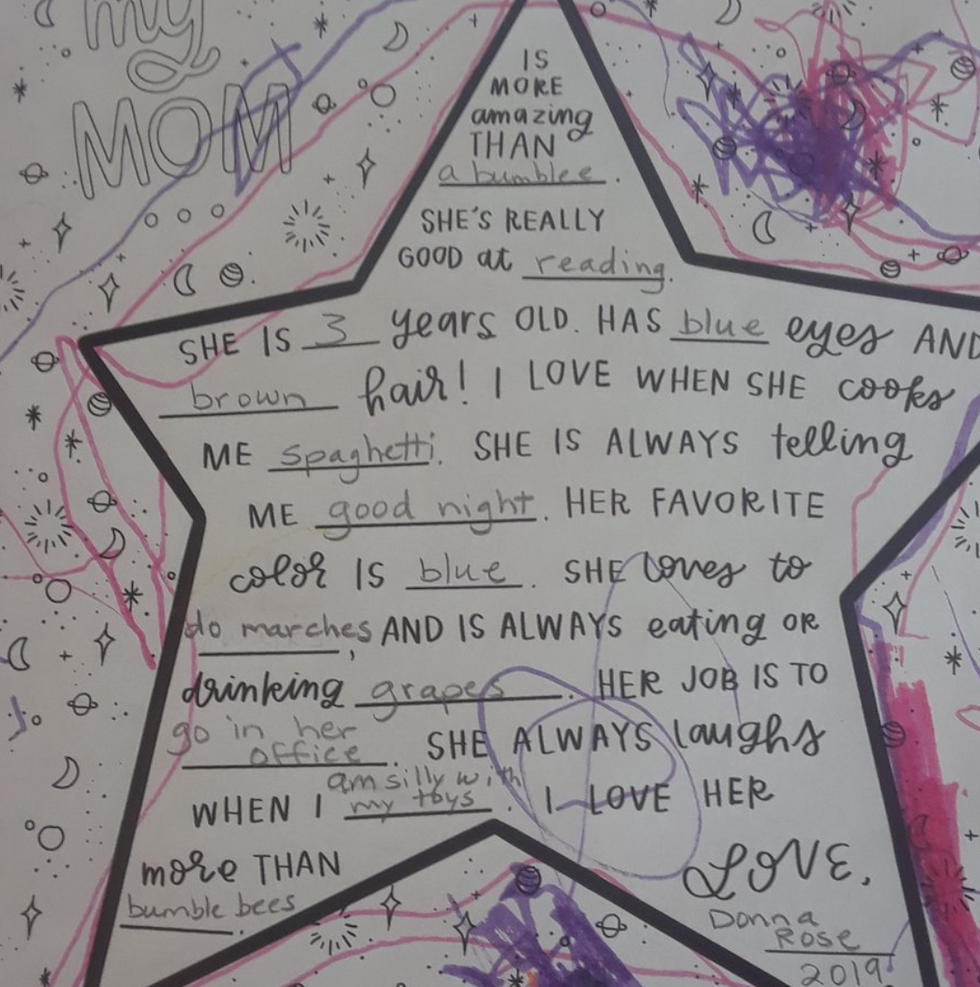 my
MOM
IS
MORE
amazing
THAN
a bumblee.
SHE'S REALLY
GOOD at reading.
SHE IS 3 years OLD. HAS blue eyes AND
brown hair! I LOVE WHEN SHE cooks
ME spaghetti. SHE IS ALWAYS telling
ME good night. HER FAVORITE
color IS blue. SHE loves to
do marches, AND IS ALWAYS eating OR
drinking grapes. HER JOB IS TO
go in her
office. SHE ALWAYS laughs
am silly with
WHEN I my toys. I LOVE HER
more THAN
bumble bees.
LOVE,
Donna
Rose
2019